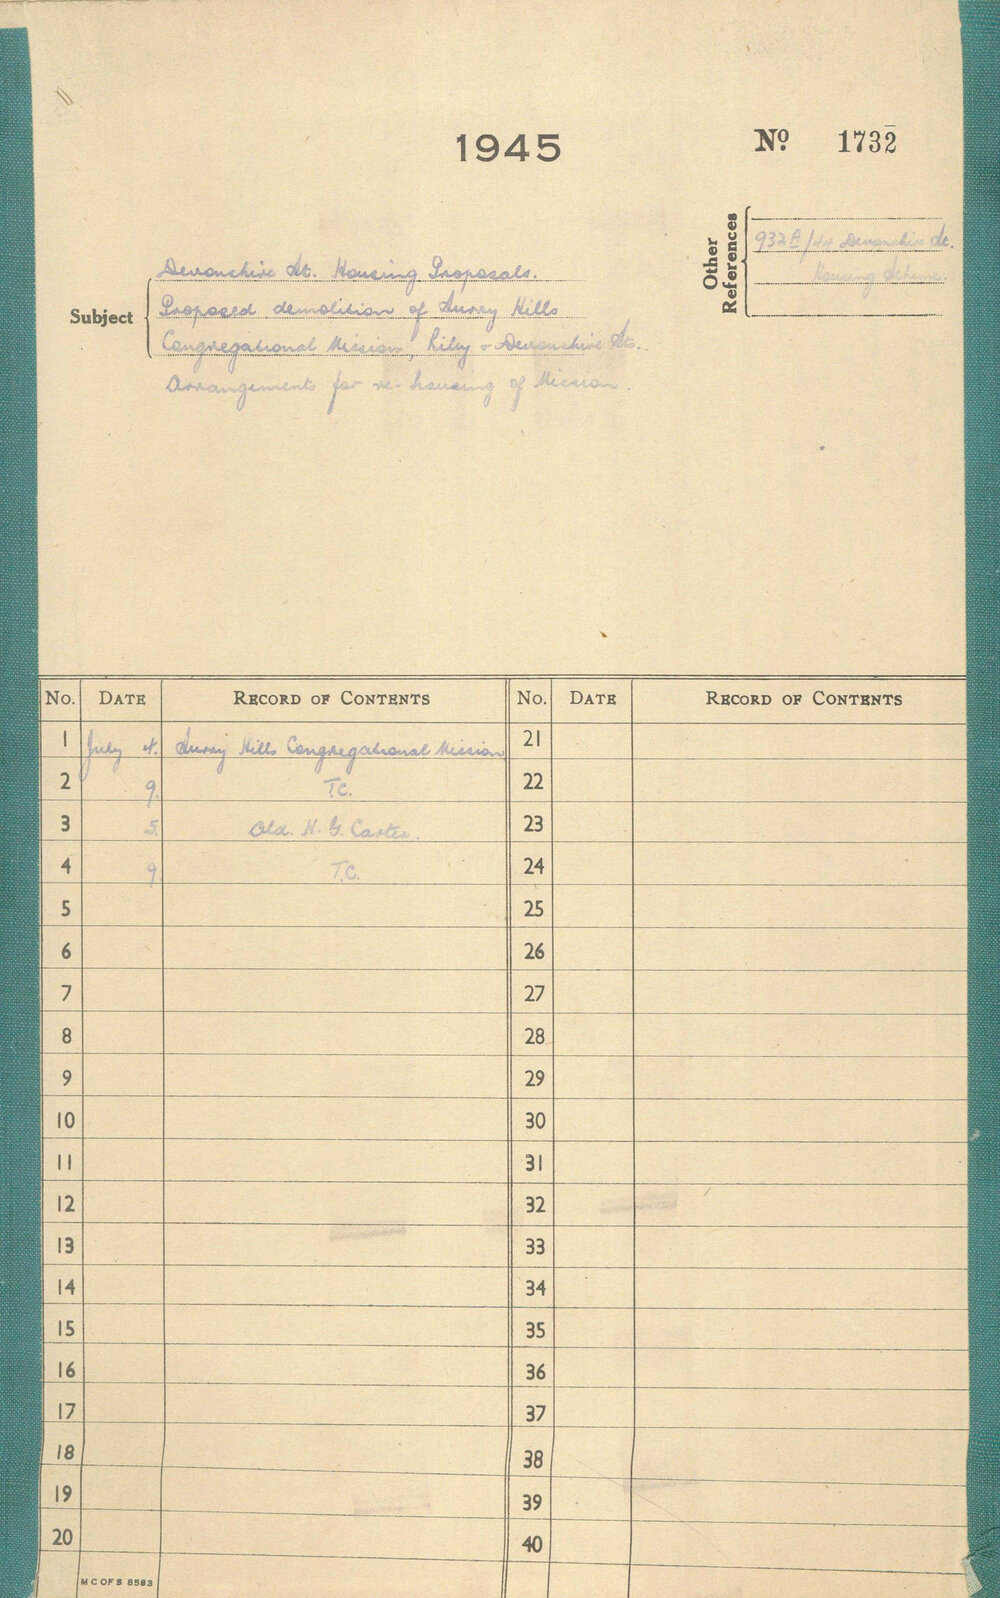 1945
Nº 1732
Other References
932A/44 Devonshire St.
Housing Scheme.
Subject
Devonshire St. Housing Proposals.
Proposed demolition of Surry Hills
Congregational Mission, Riley & Devonshire Sts.
Arrangements for re-housing of Mission.
No. DATE RECORD OF CONTENTS No. DATE RECORD OF CONTENTS
1 July 4. Surry Hills Congregational Mission 21
2 9. T.C. 22
3 5. Ald. H. G. Carter. 23
4 9. T.C. 24
5 25
6 26
7 27
8 28
9 29
10 30
11 31
12 32
13 33
14 34
15 35
16 36
17 37
18 38
19 39
20 40
M C OF S 8583